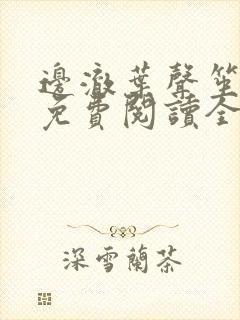 邊澈葉聲笙
免費閱讀全
深雪蘭茶